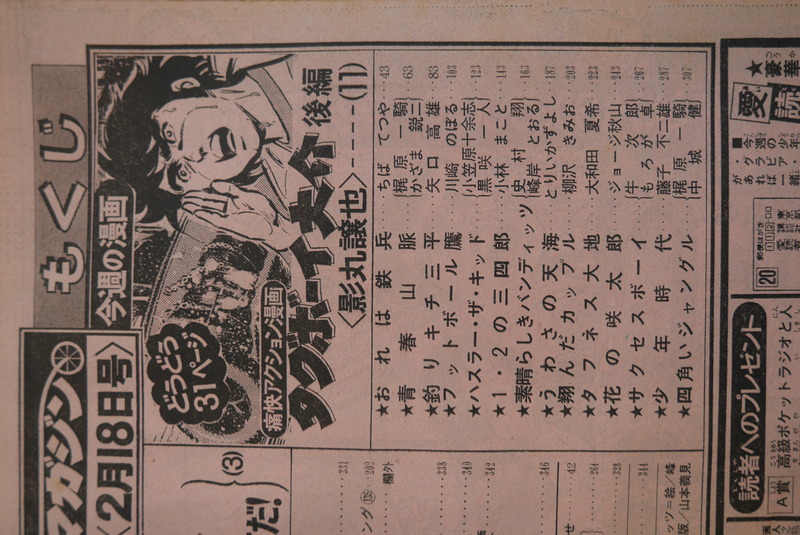 マガジン
〈2月18日号〉
もくじ
今週の漫画
どうどう
31ページ
痛快アクション漫画
タグボート大介
後編
〈影丸譲也〉----(11)
★おれは鉄兵……ちばてつや…43
★青春山脈……{梶原一騎 かざま鋭二…63
★釣りキチ三平……矢口高雄…83
★フットボール鷹……川崎のぼる…103
★ハスラー・ザ・キッド……{小笠原十余志 黒咲一人…123
★1・2の三四郎……小林まこと…143
★素晴らしきバンディッツ{史村翔 峰岸とおる…163
★うわさの天海……とりいかずよし…187
★翔んだカップル……柳沢きみお…203
★タフネス大地……大和田夏希…223
★花の咲太郎……ジョージ秋山…243
★サクセスボーイ……{牛次郎 もろが卓…267
★少年時代……藤子不二雄…287
★四角いジャングル……{梶原一騎 中城健…307
だ!
(3)
331
202
欄外
338
340
342
346
42
264
328
344
★豪華
愛読
■今週の少年
・グラビア・
があれば一緒
郵便はがき
112-00
20
読者へのプレゼント
A賞
高級ポケットラジオと人
版/山本義見